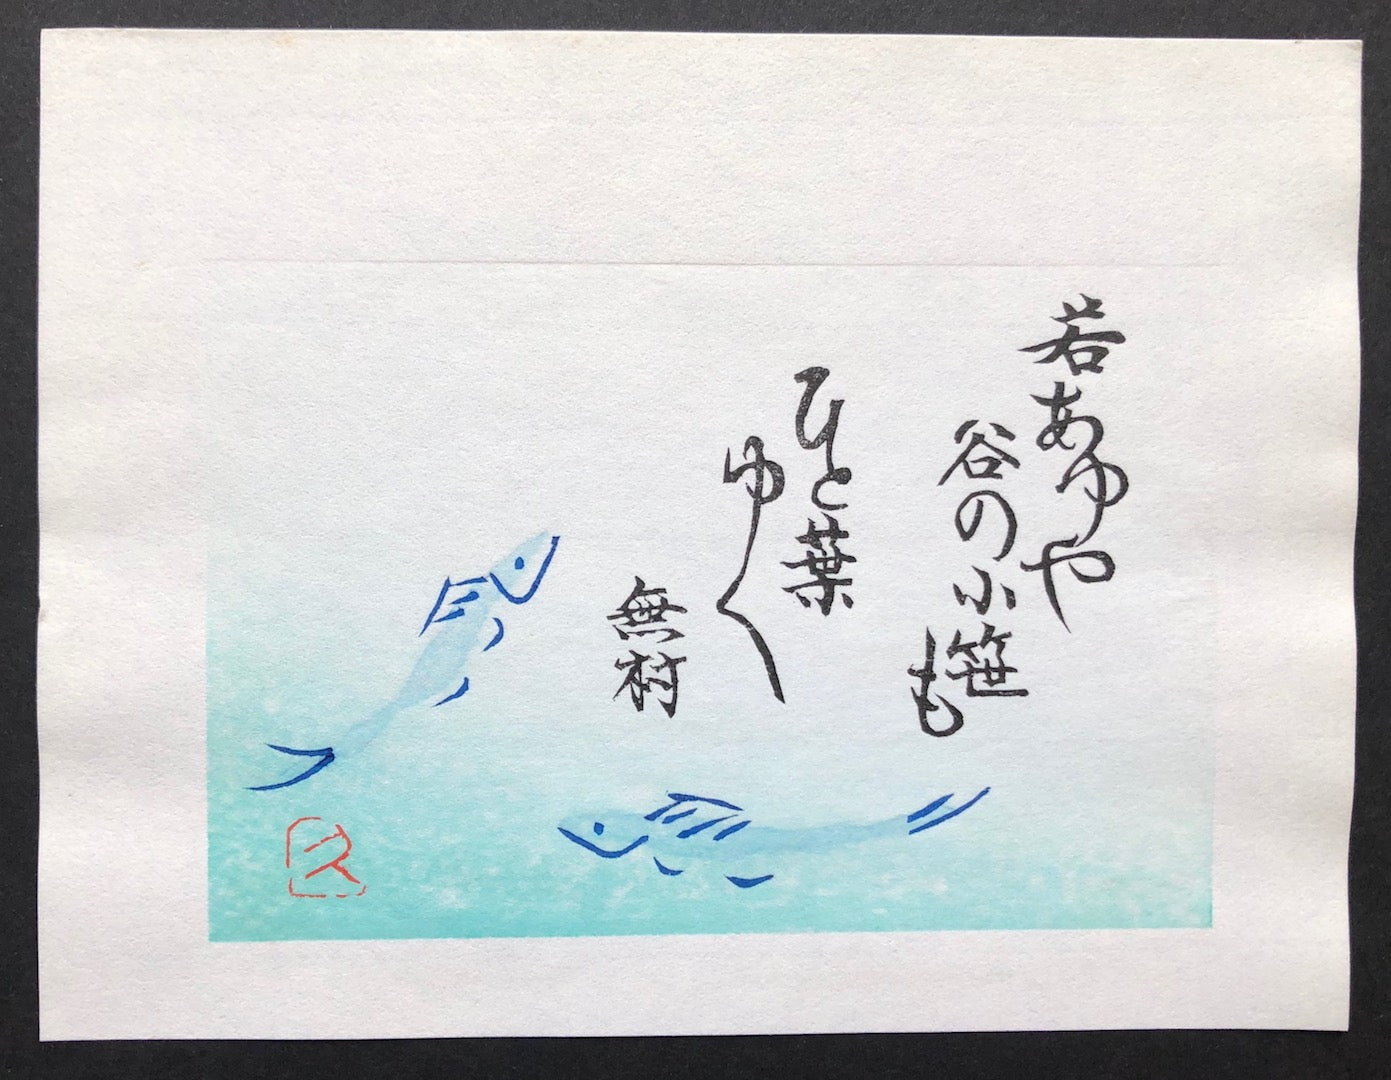 若あゆや
谷の小笹も
ひと葉
ゆく
無村
久